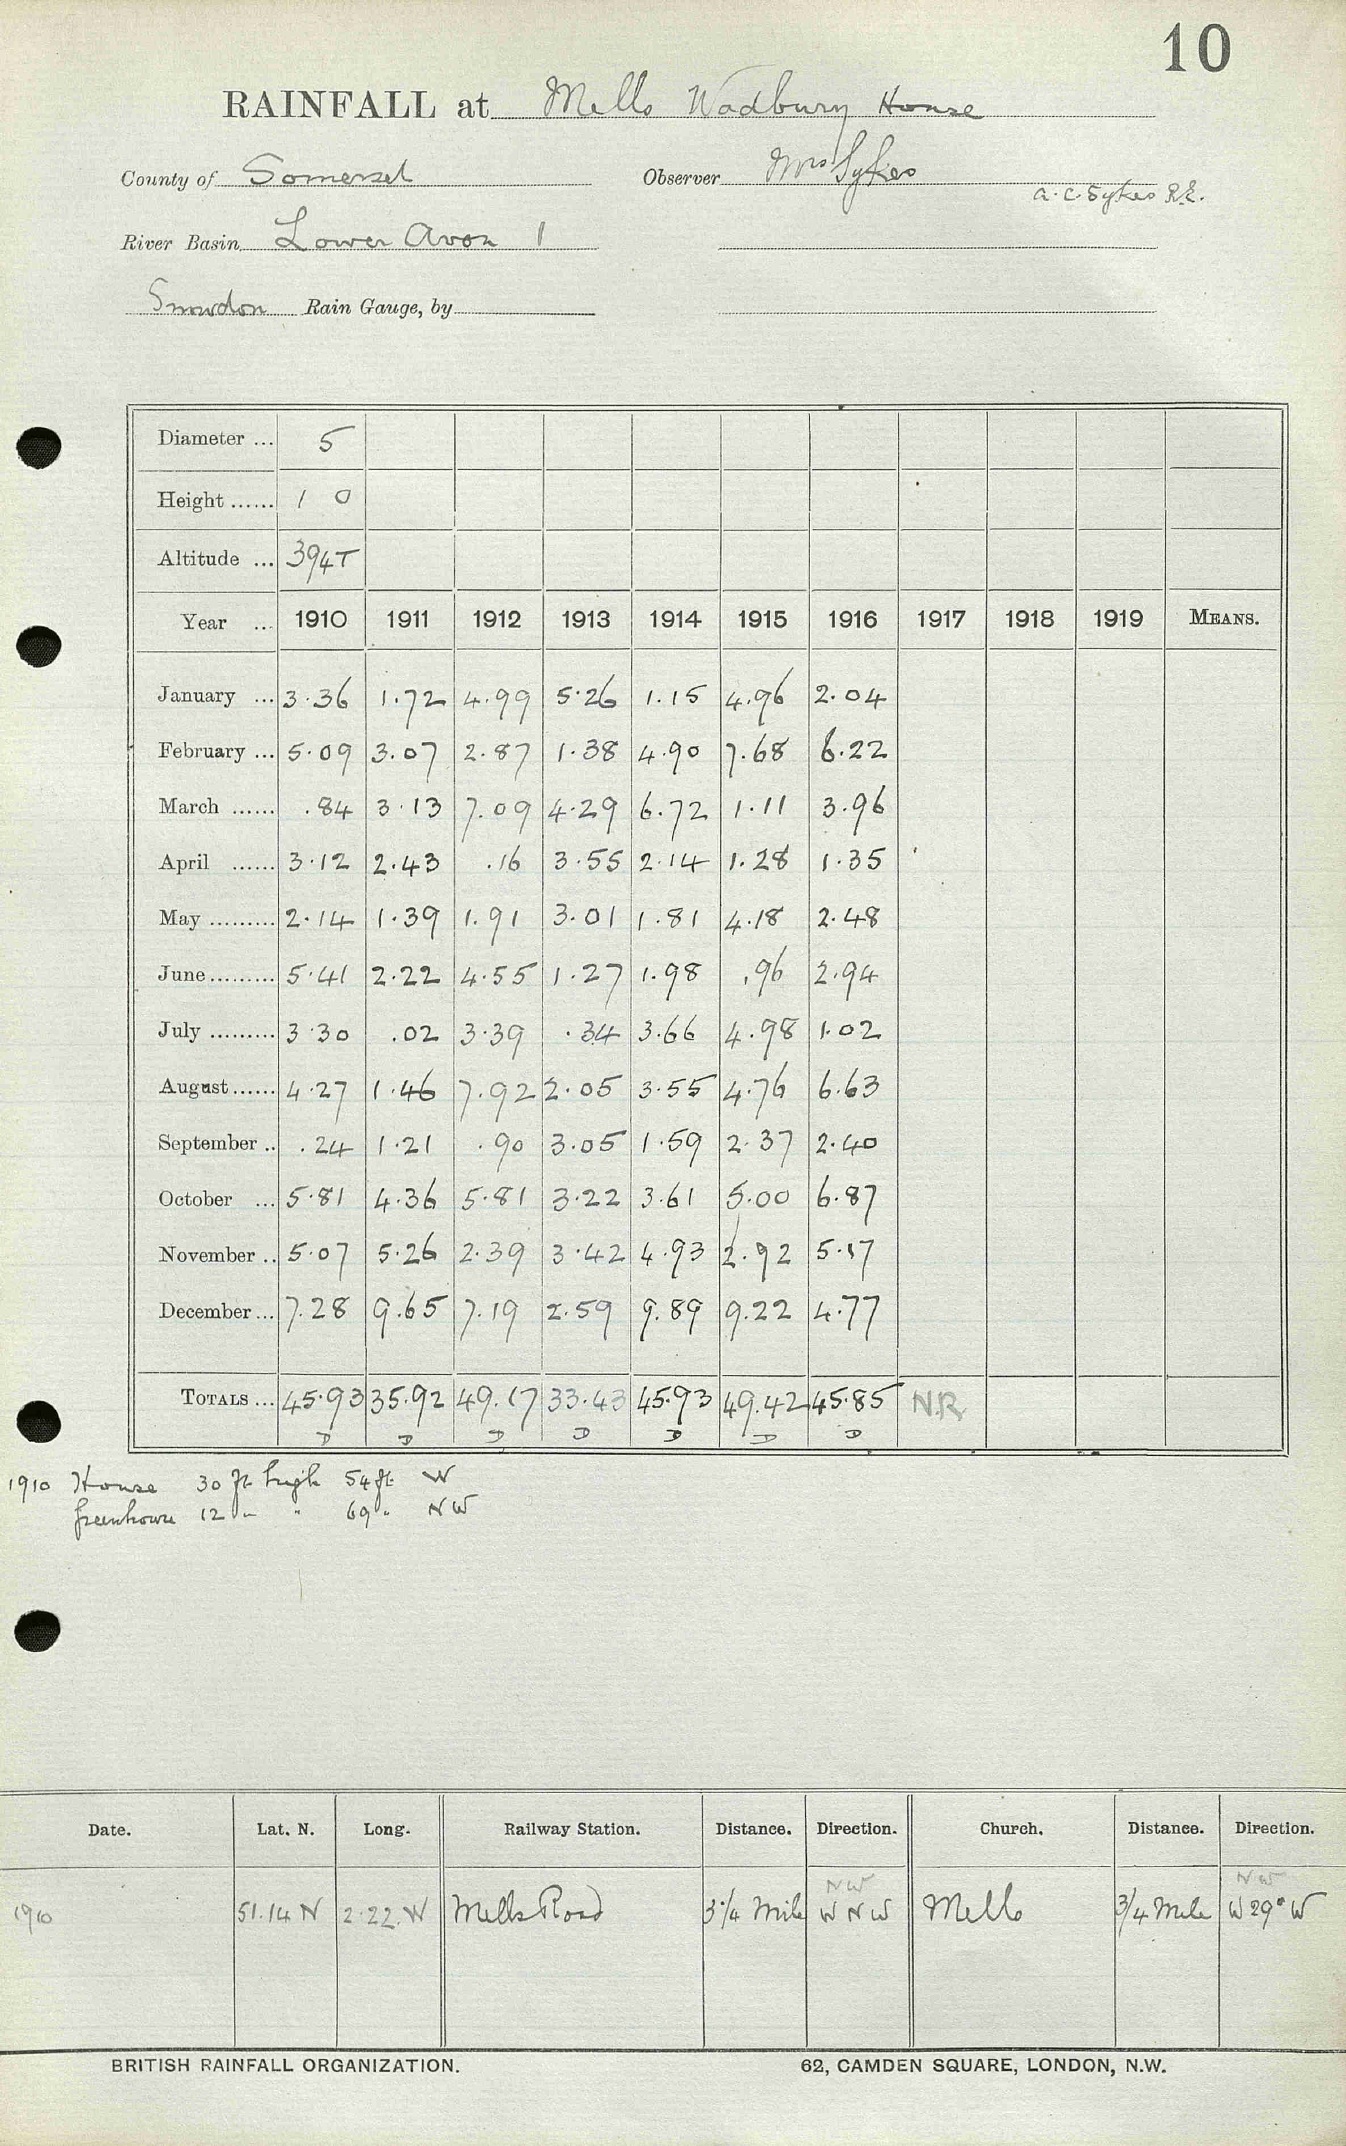 10
RAINFALL at Mells Wadbury House
County of Somerset Observer Mrs Sykes
A.C. Sykes R.E.
River Basin Lower Avon 1
Snowdon Rain Gauge, by
Diameter ... 5
Height ...... 1 0
Altitude ... 394T
Year ... 1910 1911 1912 1913 1914 1915 1916 1917 1918 1919 MEANS.
January ... 3.36 1.72 4.99 5.26 1.15 4.96 2.04
February ... 5.09 3.07 2.87 1.38 4.90 7.68 6.22
March ...... .84 3.13 7.09 4.29 6.72 1.11 3.96
April ...... 3.12 2.43 .16 3.55 2.14 1.28 1.35
May ......... 2.14 1.39 1.91 3.01 1.81 4.18 2.48
June ......... 5.41 2.22 4.55 1.27 1.98 .96 2.94
July ......... 3.30 .02 3.39 .34 3.66 4.98 1.02
August ...... 4.27 1.46 7.92 2.05 3.55 4.76 6.63
September .. .24 1.21 .90 3.05 1.59 2.37 2.40
October ... 5.81 4.36 5.81 3.22 3.61 5.00 6.87
November .. 5.07 5.26 2.39 3.42 4.93 2.92 5.17
December ... 7.28 9.65 7.19 2.59 9.89 9.22 4.77
TOTALS ... 45.93 35.92 49.17 33.43 45.93 49.42 45.85 N.R.
D D D D D D D
1910 House 30 ft high 54 ft W
Greenhouse 12 " " 69 " NW
Date. Lat. N. Long. Railway Station. Distance. Direction. Church. Distance. Direction.
NW NW
1910 51.14 N 2.22.W Mells Road 3 1/4 Mile W N W Mells 3/4 Mile W 29° W
BRITISH RAINFALL ORGANIZATION. 62, CAMDEN SQUARE, LONDON, N.W.